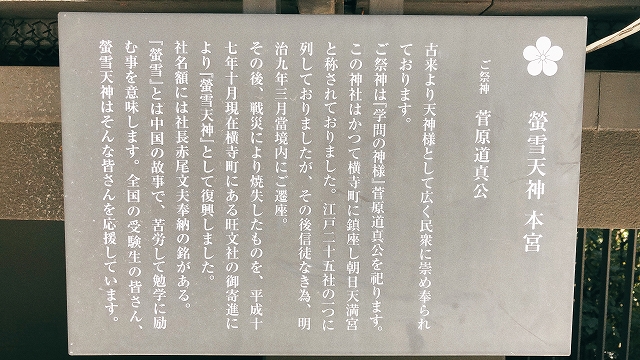 螢雪天神 本宮
ご祭神 菅原道真公
古来より天神様として広く民衆に崇め奉られ
ております。
ご祭神は『学問の神様』菅原道真公を祀ります。
この神社はかつて横寺町に鎮座し朝日天満宮
と称されておりました。江戸二十五社の一つに
列しておりましたが、その後信徒なき為、明
治九年三月當境内にご遷座。
その後、戦災により焼失したものを、平成十
七年十月現在横寺町にある旺文社の御寄進に
より『螢雪天神』として復興しました。
社名額には社長赤尾文夫奉納の銘がある。
『螢雪』とは中国の故事で、苦労して勉学に励
む事を意味します。全国の受験生の皆さん、
螢雪天神はそんな皆さんを応援しています。